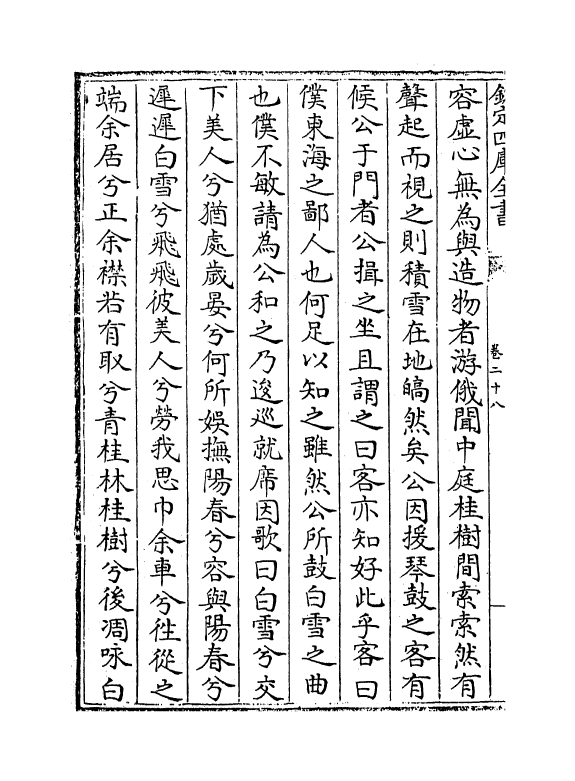 欽定四庫全書
卷二十八
容虛心無為與造物者游俄聞中庭桂樹間索索然有
聲起而視之則積雪在地皜然矣公因援琴鼓之客有
候公于門者公揖之坐且謂之曰客亦知好此乎客曰
僕東海之鄙人也何足以知之雖然公所鼓白雪之曲
也僕不敏請為公和之乃逡巡就席因歌曰白雪兮交
下美人兮猶處歲晏兮何所娛撫陽春兮容與陽春兮
遲遲白雪兮飛飛彼美人兮勞我思巾余車兮往從之
端余居兮正余襟若有取兮青桂林桂樹兮後凋咏白